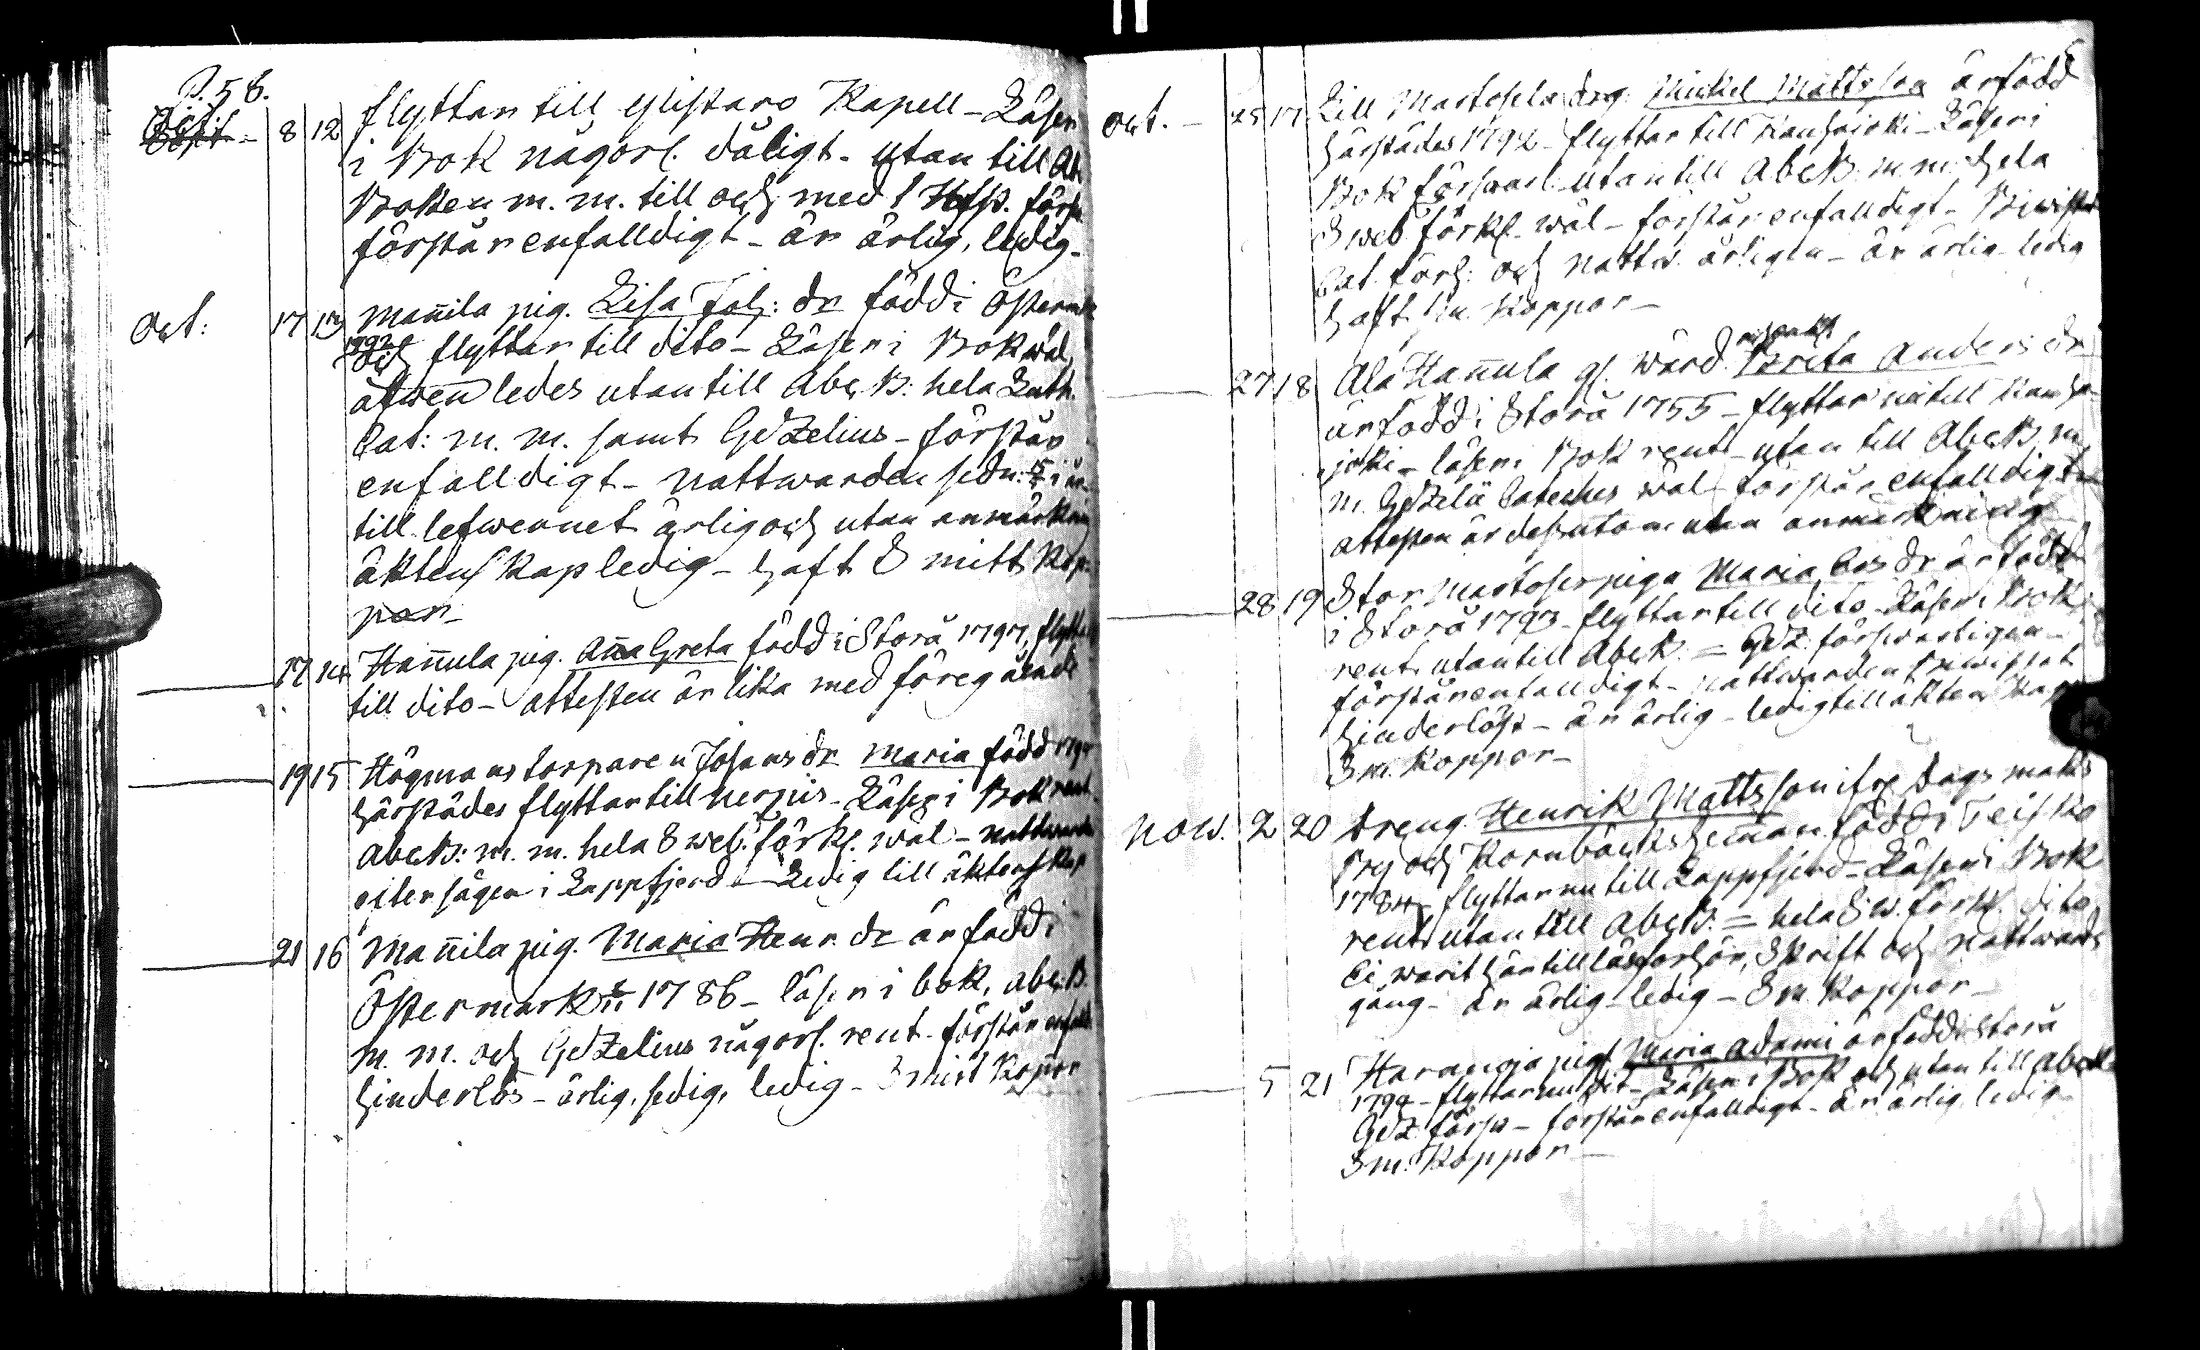 P. 58.
Oct. 8 12 flyttar till Ylistaro Kapell - Läser
i Bok någorl. dåligt. utan till Ab
Boken m. m. till och med förkl.
förstår enfalldigt - är ärlig, ledig -
Oct: 17 13 Mañila pig. Lisa Joh: dr född i Österm
1792 och flyttar till dito - Läser i Bok wäl,
äfwen ledes utan till AbcB: hela Luth.
Cat: m. m. samt Gezelius - förstår
enfalldigt - nattwarden sedn:
till lefwernet ärlig och utan anmärkn
äktenskap ledig - haft Smitt Kop-
por -
17 14 Hañula pig. Aña Greta född i Storå 1797, flyttar
till dito - attesten är lika med föregående
19 15 Högmans torparen Johans dr Maria född
härstädes flyttar till Nerpis - Läser i Bok rent
AbcB: m. m. hela Sweb. förkl. wäl - nattwarden
efter sägen i Lappfjerd - Ledig till äktenskap
21 16 Mañila pig. Maria Henr. dr är född i
Östermark 1786 - läser i bok, abcB
m. m. och Gezelius någorl. rent - förstår enfall
hinderlös - ärlig, sedig, ledig - Smitt Koppor
Oct. - 25 17 Lill Martosela drg. Mickel Mattsson är född
härstädes 1792 - flyttar till Kauhajoki - Läser i
Bok försvarl. utan till AbcB. m. m. hela
Sweb förkl. wäl - förstår enfalldigt - Biwistat
Cat. förh: och nattw. årligen - är ärlig ledig
haft Sm. Koppor -
27 18 Ala Hañula gl. wärd. Enka Brita Anders dr
är född i Storå 1755 - flyttar nu till Kauha-
joki - läser i Bok rent - utan till AbcB. m.
m. Gezelii Cateches wäl - förstår enfalldigt
attesten är dessutom utan anmärkning
28 19 Stor Martoser piga Maria Cas dr är född
i Storå 1793 - flyttar till dito - Läser i Bok
rent, utan till AbcB. = Gez. förswarligen -
förstår enfalldigt - nattwarden biwistat
hinderlöst - är ärlig - ledig till äktenskap
Sm. Koppor -
Now. 2 20 Dreng Henrik Mattsson ifrå Dagsmark
By och Kornbäcks heman född i Teisko
1784 - flyttar nu till Lappfjerd - Läser i Bok
rent, utan till AbcB. = hela Sw. förkl. dito,
Ei warit här till läseförhör, Skrift och nattwards
gång - är ärlig - ledig - Sm. Koppor -
5 21 Haranoja pig. Maria Adami är född i Storå
1792 - flyttar nu dit - Läser i Bok och utan till AbcB
Gez. försw - förstår enfalldigt - är ärlig, ledig
Sm. Koppor -